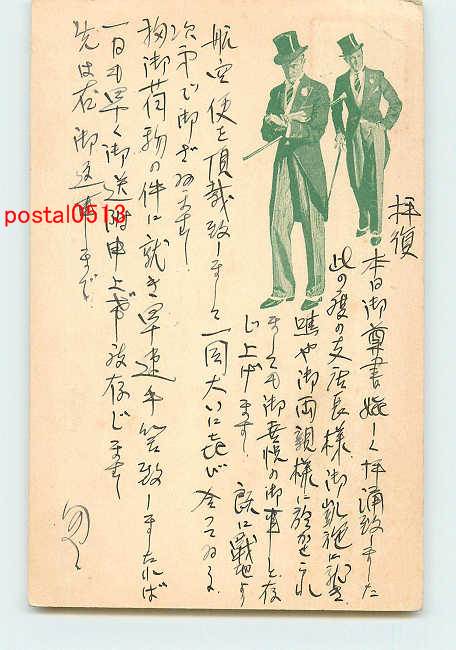 拝復
本日御尊書嬉しく拝誦致しました
此の度の支店長様御凱旋に就き
嘸や御両親様に於かせられ
ましても御喜悦の御事と存
じ上げます 既に戦地より
航空便を頂戴致しまして一同大いに喜び合つてゐる
次第で御ざゐます
御荷物の件に就き早速手筈致しましたれば
一日も早く御送附申上ぐ可く存じます
先は右御返事まで
postal0513